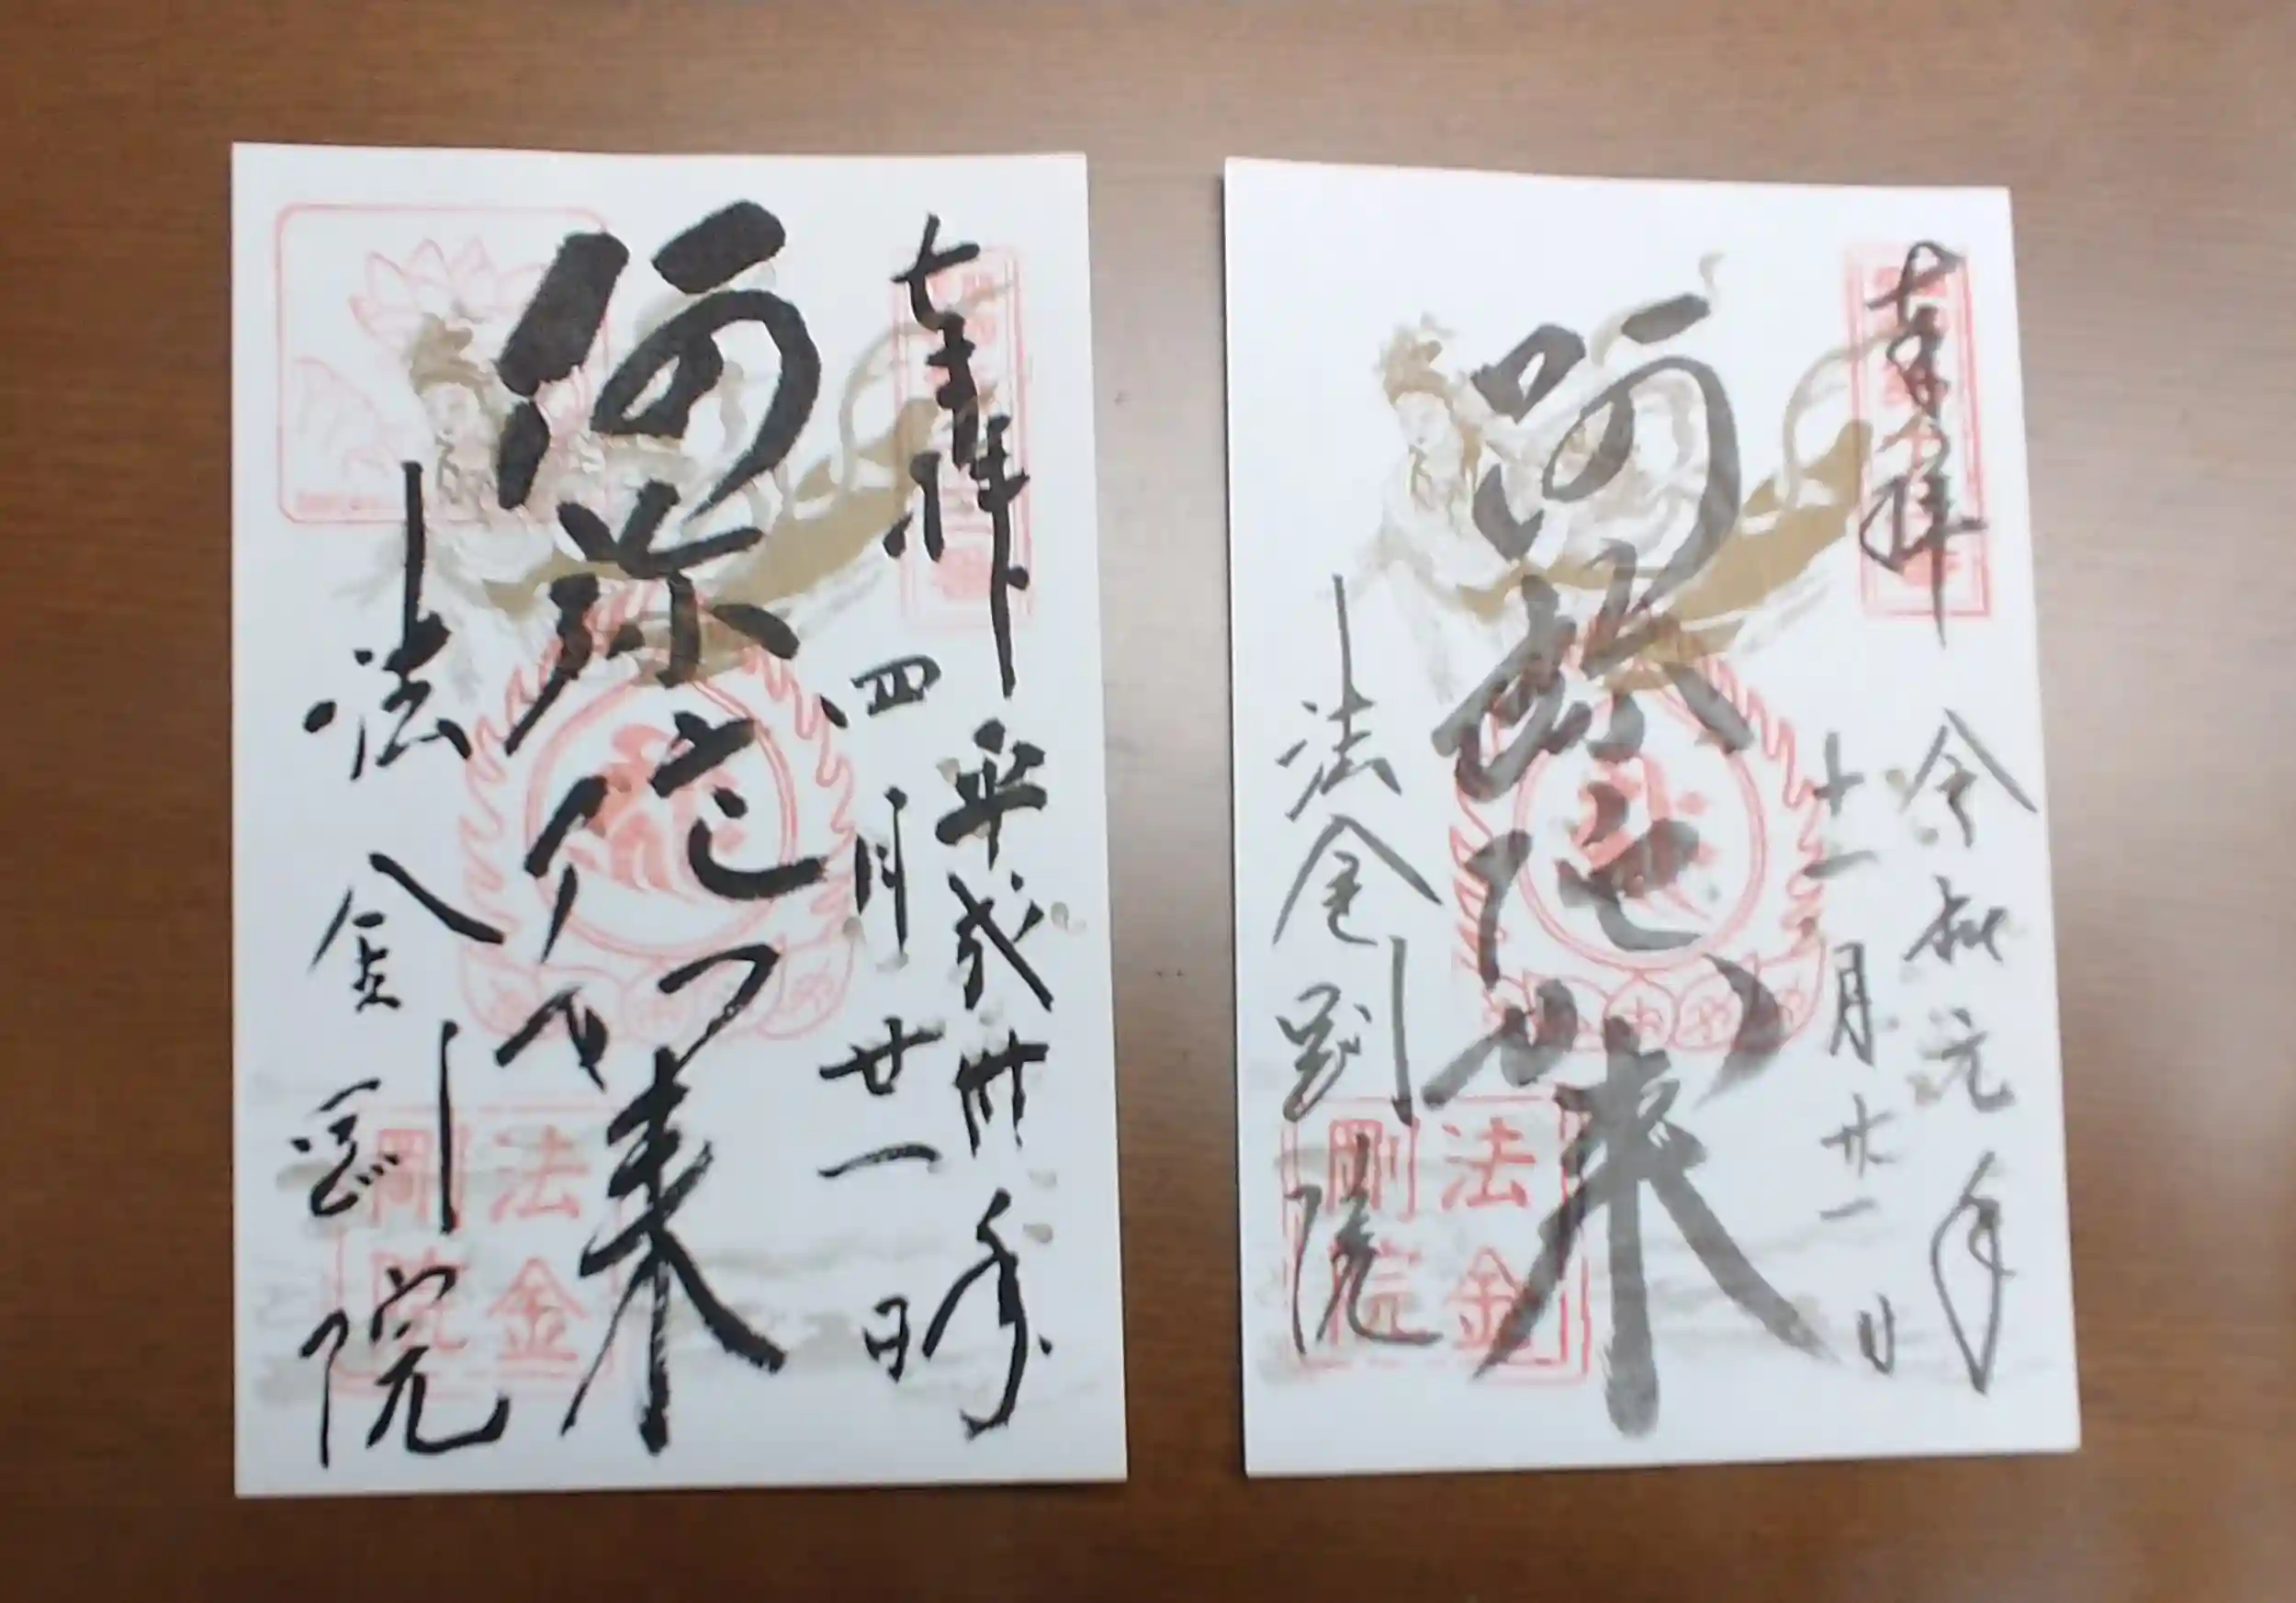 奉拝
平成卅年
四月廿一日
阿弥陀如来
法金剛院
法金
剛院
奉拝
令和元年
十一月廿一日
阿弥陀如来
法金剛院
法金
剛院